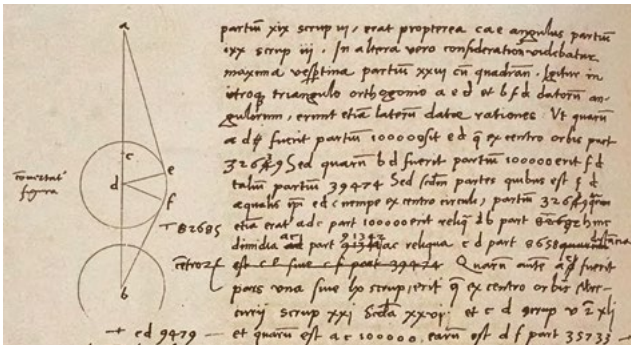 a
c
e
d
f
b
figura
partiū xix scrup iij, erat propterea c a e angulus partiū
scrup iij. In altera vero consideratione videbatur
maxima vespertina partiū xxvi cū quadran. Igitur in
utroq triangulo orthogonio a e d et b f d datorū an-
gulorum, erunt etiā laterum datae rationes. Ut quarū
a d fuerit partiū 100000 sit e d q ex centro orbis part
Sed quarū b d fuerit partiū 100000 erit f d
talium partiū 39474 Sed scdm partes quibus est f d
aequalis ipi e d nempe ex centro circuli, partiū
82685 etiā erat a d part 100000 erit reliq d b part hinc
dimidia a c part 91342 ac reliqua c d part 8658 distantia
est c e sive c f part 39474 Quarū ante a c fuerit
pars una sive lx scrup, erit q ex centro orbis Mer-
curii scrup xxi Scda xxvi et c d scrup v 2 xli
cd 9479 et quarū est a c 100000, earū est d f part 35733